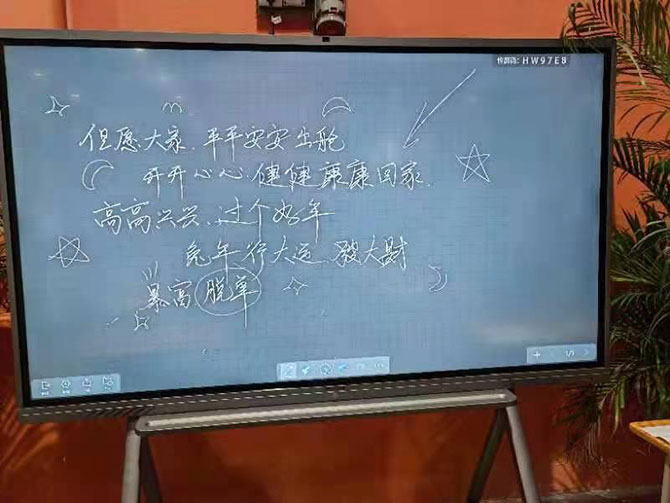 投屏码: HW97E8
但愿大家.平平安安出舱
开开心心.健健康康回家.
高高兴兴.过个好年
兔年行大运.發大财
暴富 脱单